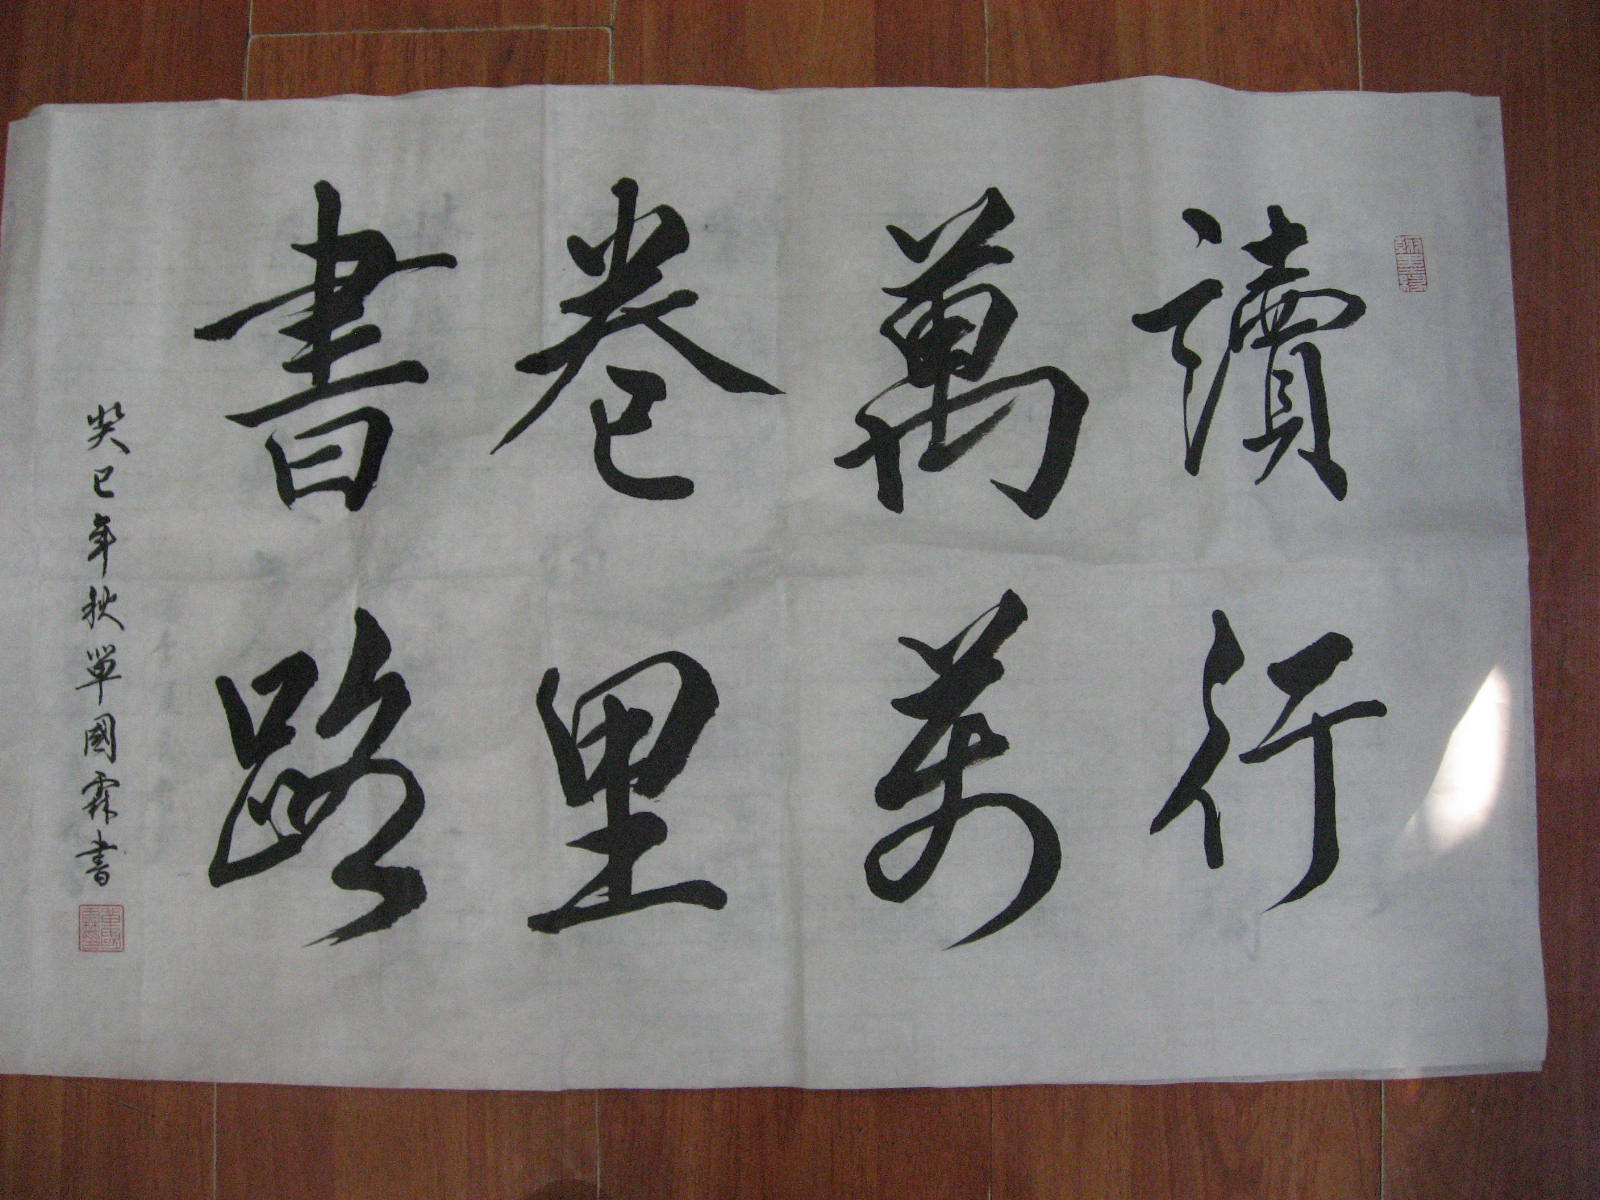 讀萬卷書
行萬里路
癸巳年秋單國霖書